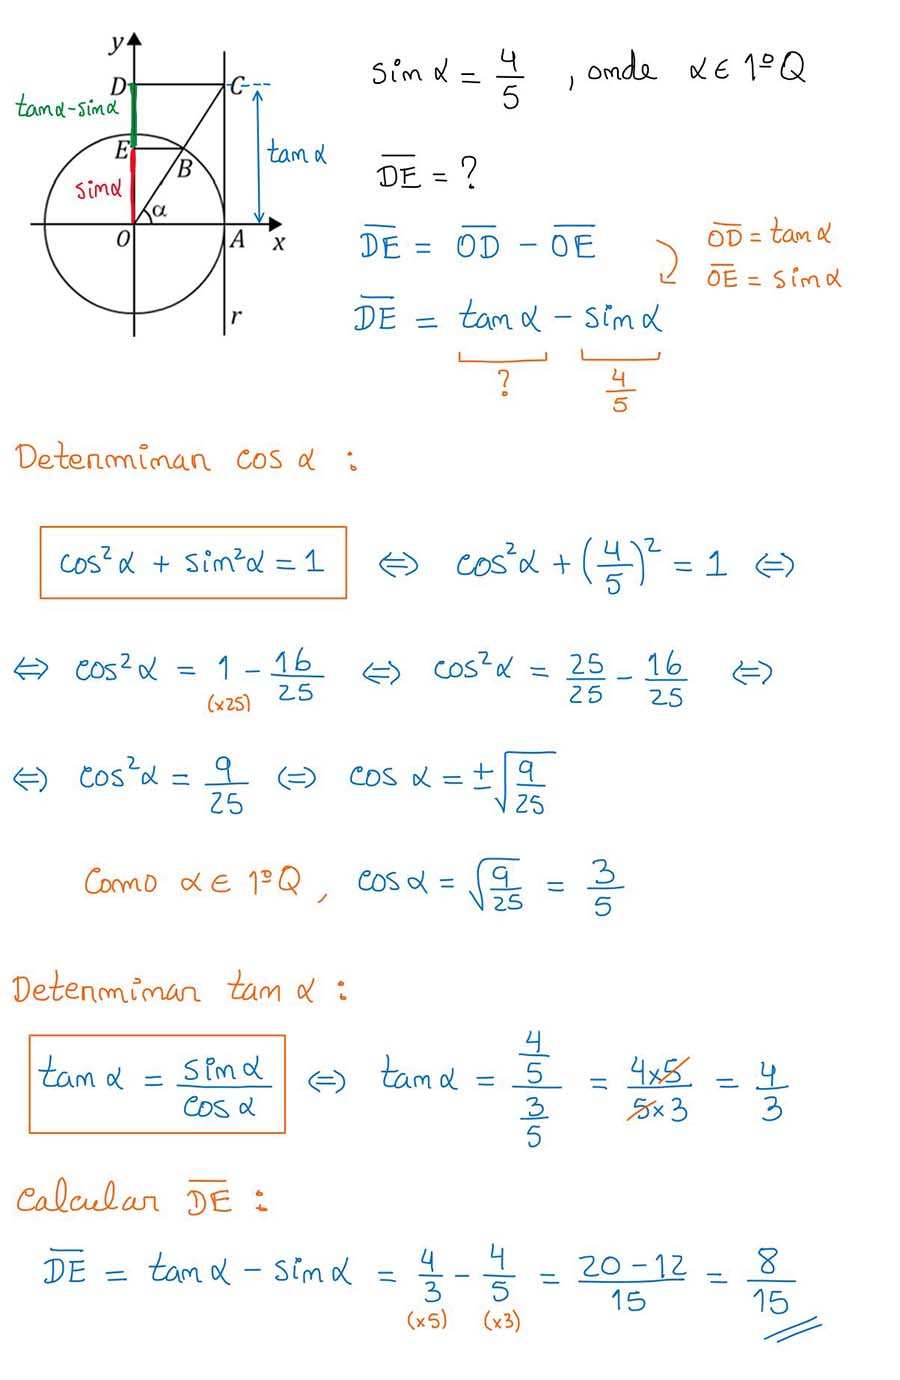 y
D
C
tanα-sinα
E
B
tanα
sinα
α
O
A
x
r
sinα = 4/5 , onde α ∈ 1ºQ
D̅E̅ = ?
D̅E̅ = O̅D̅ - O̅E̅
O̅D̅ = tanα
O̅E̅ = sinα
D̅E̅ = tanα - sinα
? 4/5
Determinar cos α :
cos²α + sin²α = 1 ⇔ cos²α + (4/5)² = 1 ⇔
⇔ cos²α = 1 - 16/25 ⇔ cos²α = 25/25 - 16/25 ⇔
(x25)
⇔ cos²α = 9/25 ⇔ cos α = ±√(9/25)
Como α ∈ 1ºQ , cosα = √(9/25) = 3/5
Determinar tan α :
tan α = sinα/cosα ⇔ tanα = (4/5)/(3/5) = 4x5/5x3 = 4/3
Calcular D̅E̅ :
D̅E̅ = tanα - sinα = 4/3 - 4/5 = 20-12/15 = 8/15
(x5) (x3)